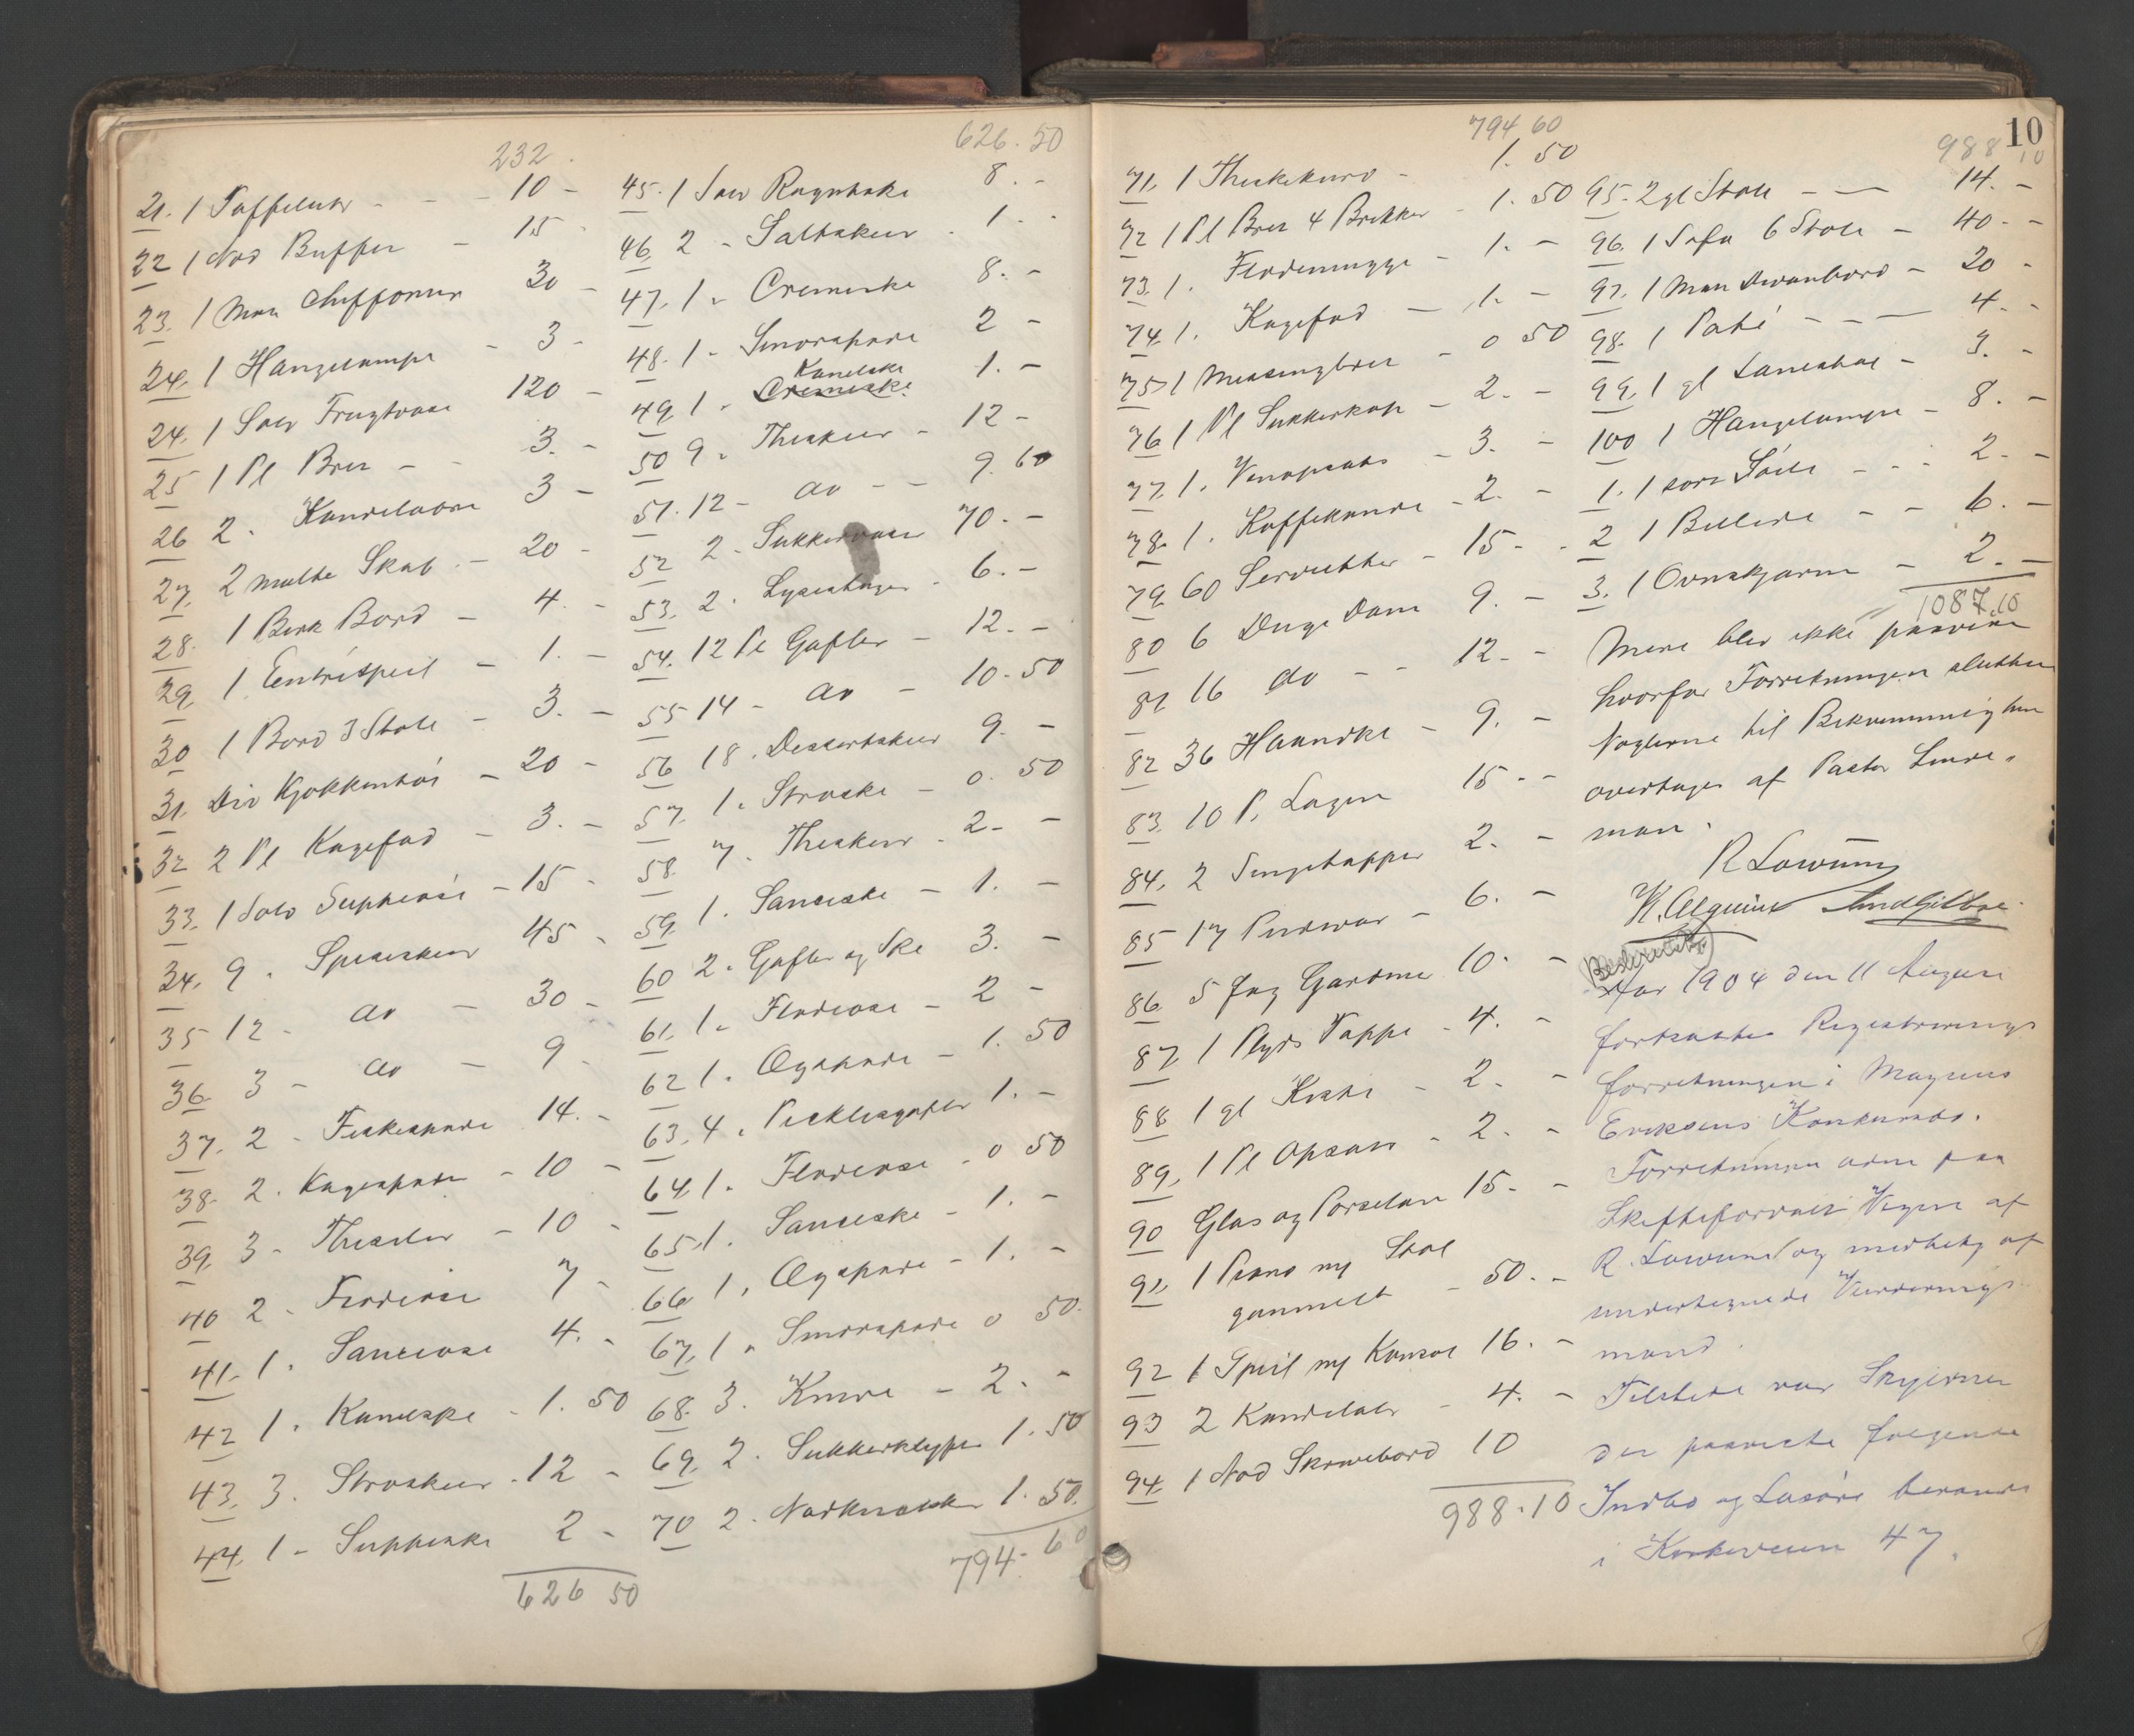 232.
21. 1 Taffeluhr - - - 10 -
22 1 Nød Buffer - 15 -
23. 1 Man Chiffonier 30 -
24. 1 Hangelampe - 3 -
24. 1 Sølv Frugtvase 120 -
25 1 Pl Bret - - 3. -
26 2 - Kandelabre 3 -
27. 2 malte Skab - 20 -
28. 1 Birk Bord - 4. -
29 1 Entréspeil - 1. -
30 1 Bord 3 Stole - 3. -
31. Div Kjøkkentøi - 20 -
32 2 Pl Kagefad - 3. -
33. 1 Sølv Suppeøse - 15 -
34. 9 - Spiseskeer 45 -
35 12 - do - 30 -
36. 3 - do - 9 -
37. 2 - Fiskespade 14. -
38. 2 - Kagespader - 10 -
39. 3 - Thesiler - 10 -
40 2 - Flødeøse 7 -
41. 1 - Sauceøse 4. -
42 1 - Kanelske - 1. 50
43. 3. Strøskeer - 12 -
44. 1 - Suppeske 2 -
626 50
626. 50
45. 1 Sølv Ragoutske 8. -
46. 2 - Saltskeer - 1. -
47. 1 - Cremeske 8. -
48. 1 - Smørspade 2 -
Kanelske
49. 1 - Cremeske 1. -
50 9 - Theskeer - 12 -
51. 12 - do - - 9. 60
52 2 - Sukkervaser 70. -
53. 2 - Lysestager - 6. -
54. 12 Pl Gafler - 12. -
55 14 - do - 10. 50
56 18 - Dessertskeer 9. -
57. 1 - Strøske - 0. 50
58. 7 - Theskeer - 2. -
59. 1 - Sauceske - 1. -
60 2 - Gafler og Ske 3. -
61. 1 - Flødeøse - 2 -
62 1 - Øgspade - 1. 50
63. 4 - Picklesgafler 1. -
64. 1 - Flødeøse - 0 50
65. 1 - Sauceske - 1. -
66 1 - Øgspade - 1. -
67. 1 - Smørspade 0 50.
68. 3. Knive - 2. -
69. 2 - Sukkerklyper 1. 50
70 2 - Nødknækker 1. 50.
794. 60
794 60
71. 1 Thekekurv - 1. 50
72 1 Pl Bret 4 Brikker - 1. 50
73. 1 - Flødemugge - 1. -
74. 1 - Kagefad - 1. -
75. 1 Messingbret - 0 50
76 1 Pl Sukkerkop - 2. -
77. 1 - Vinopsats - 3. -
78. 1 - Kaffekande - 2. -
79. 60 Servietter - 15. -
80 6 Duge Dam 9. -
81 16 do - - 12. -
82 36 Haandkl - 9. -
83. 10 P. Lagen 15. -
84. 2 Sengetæpper 2. -
85 17 Pudevar - 6. -
86 5 Fag Gardiner 10. -
87 1 Plyds Tæppe - 4. -
88 1 gl Kiste - 2. -
89. 1 Pl Opsats - 2. -
90 Glas og Porselæn 15. -
91. 1 Piano m/ Stol
gammelt - 50. -
92 1 Speil m/ Konsol 16. -
93 2 Kandelabr - 4. -
94. 1 Nød Skrivebord 10
988.10
10
988 10
95. 2 gl Stole - - 14. -
96. 1 Sofa 6 Stole - 40. -
97. 1 Man Divanbord - 20 -
98. 1 Paté - - - 4. -
99. 1 gl Lænestol - 3. -
100 1 Hangelampe - 8. -
1. 1 sort Søile - - - 2. -
2 1 Billede - - 6. -
3. 1 Ovnskjærm - 2. -
1087.10
Mere blev ikke paavist
hvorfor Forretningen sluttes
Nøglerne til Bekvemmeligheden
overtages af Pastor Linde-
man.
R Lowumy
Aar 1904 den 11 August
fortsattes Registrerings
forretningen i Magnus
Eriksens Konkursbo.
Forretningen adm paa
Skifteforvalt Vegne af
R. Lowumy og medtaty af
undertegnede Vurderings
mænd.
Tilstede var Skyldner
der paaviste følgende
Indbo og Løsøre beroende
i Kirkeveien 47.